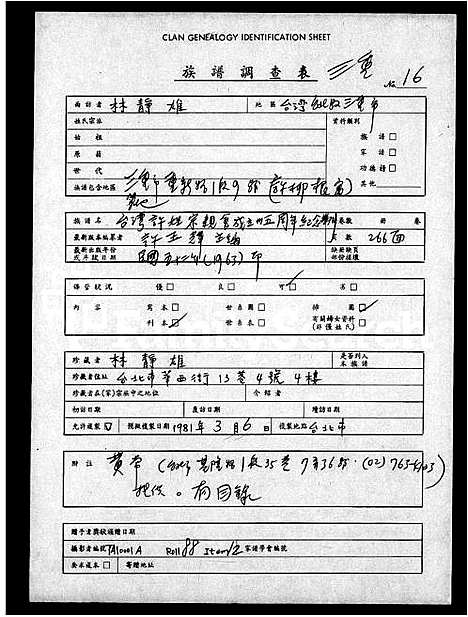 CLAN GENEALOGY IDENTIFICATION SHEET
族譜調查表 三重 No 16
面訪者 林靜雄 地區 台灣 三重市
姓氏宗派 資料類別
始祖 族譜
原籍 家譜
世代 功德譜
族譜包含地區 其他
族譜名 台灣許姓宗親會成立卅五周年紀念 卷數 冊卷
最新版本編纂者 許玉 主編 頁數 266面
最新出版年份或手抄日期 民國五十二年(1963)印 缺冊缺頁部份語擾
保管狀況 優 良 可 劣
內容 寫本 世系圖 插圖
刊本 世系表 有關婦女資料(非僅姓氏)
珍藏者 林靜雄 是否列入本族譜
珍藏者住址 台北市華西街13巷4號4樓
珍藏者在(家)宗族中之地位 介紹者
初訪日期 復訪日期 續訪日期
允許複製 預擬複製日期 1981年3月6日 複製地點 台北市
附註 黃 (台北 基隆路1段35巷7弄36號
提供。有目錄
贈予者獎狀通贈日期
攝影者編號 TA10001A Roll 88 Item 12 家譜學會編號
要求成本 寄贈地址